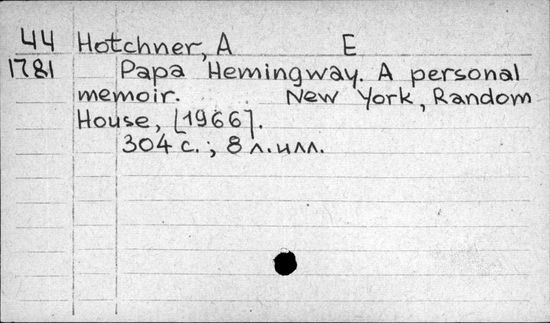 44 Hotchner, A E
1781 Papa Hemingway. A personal
memoir. New York, Random
House, [1966].
304 с.; 8 л.илл.